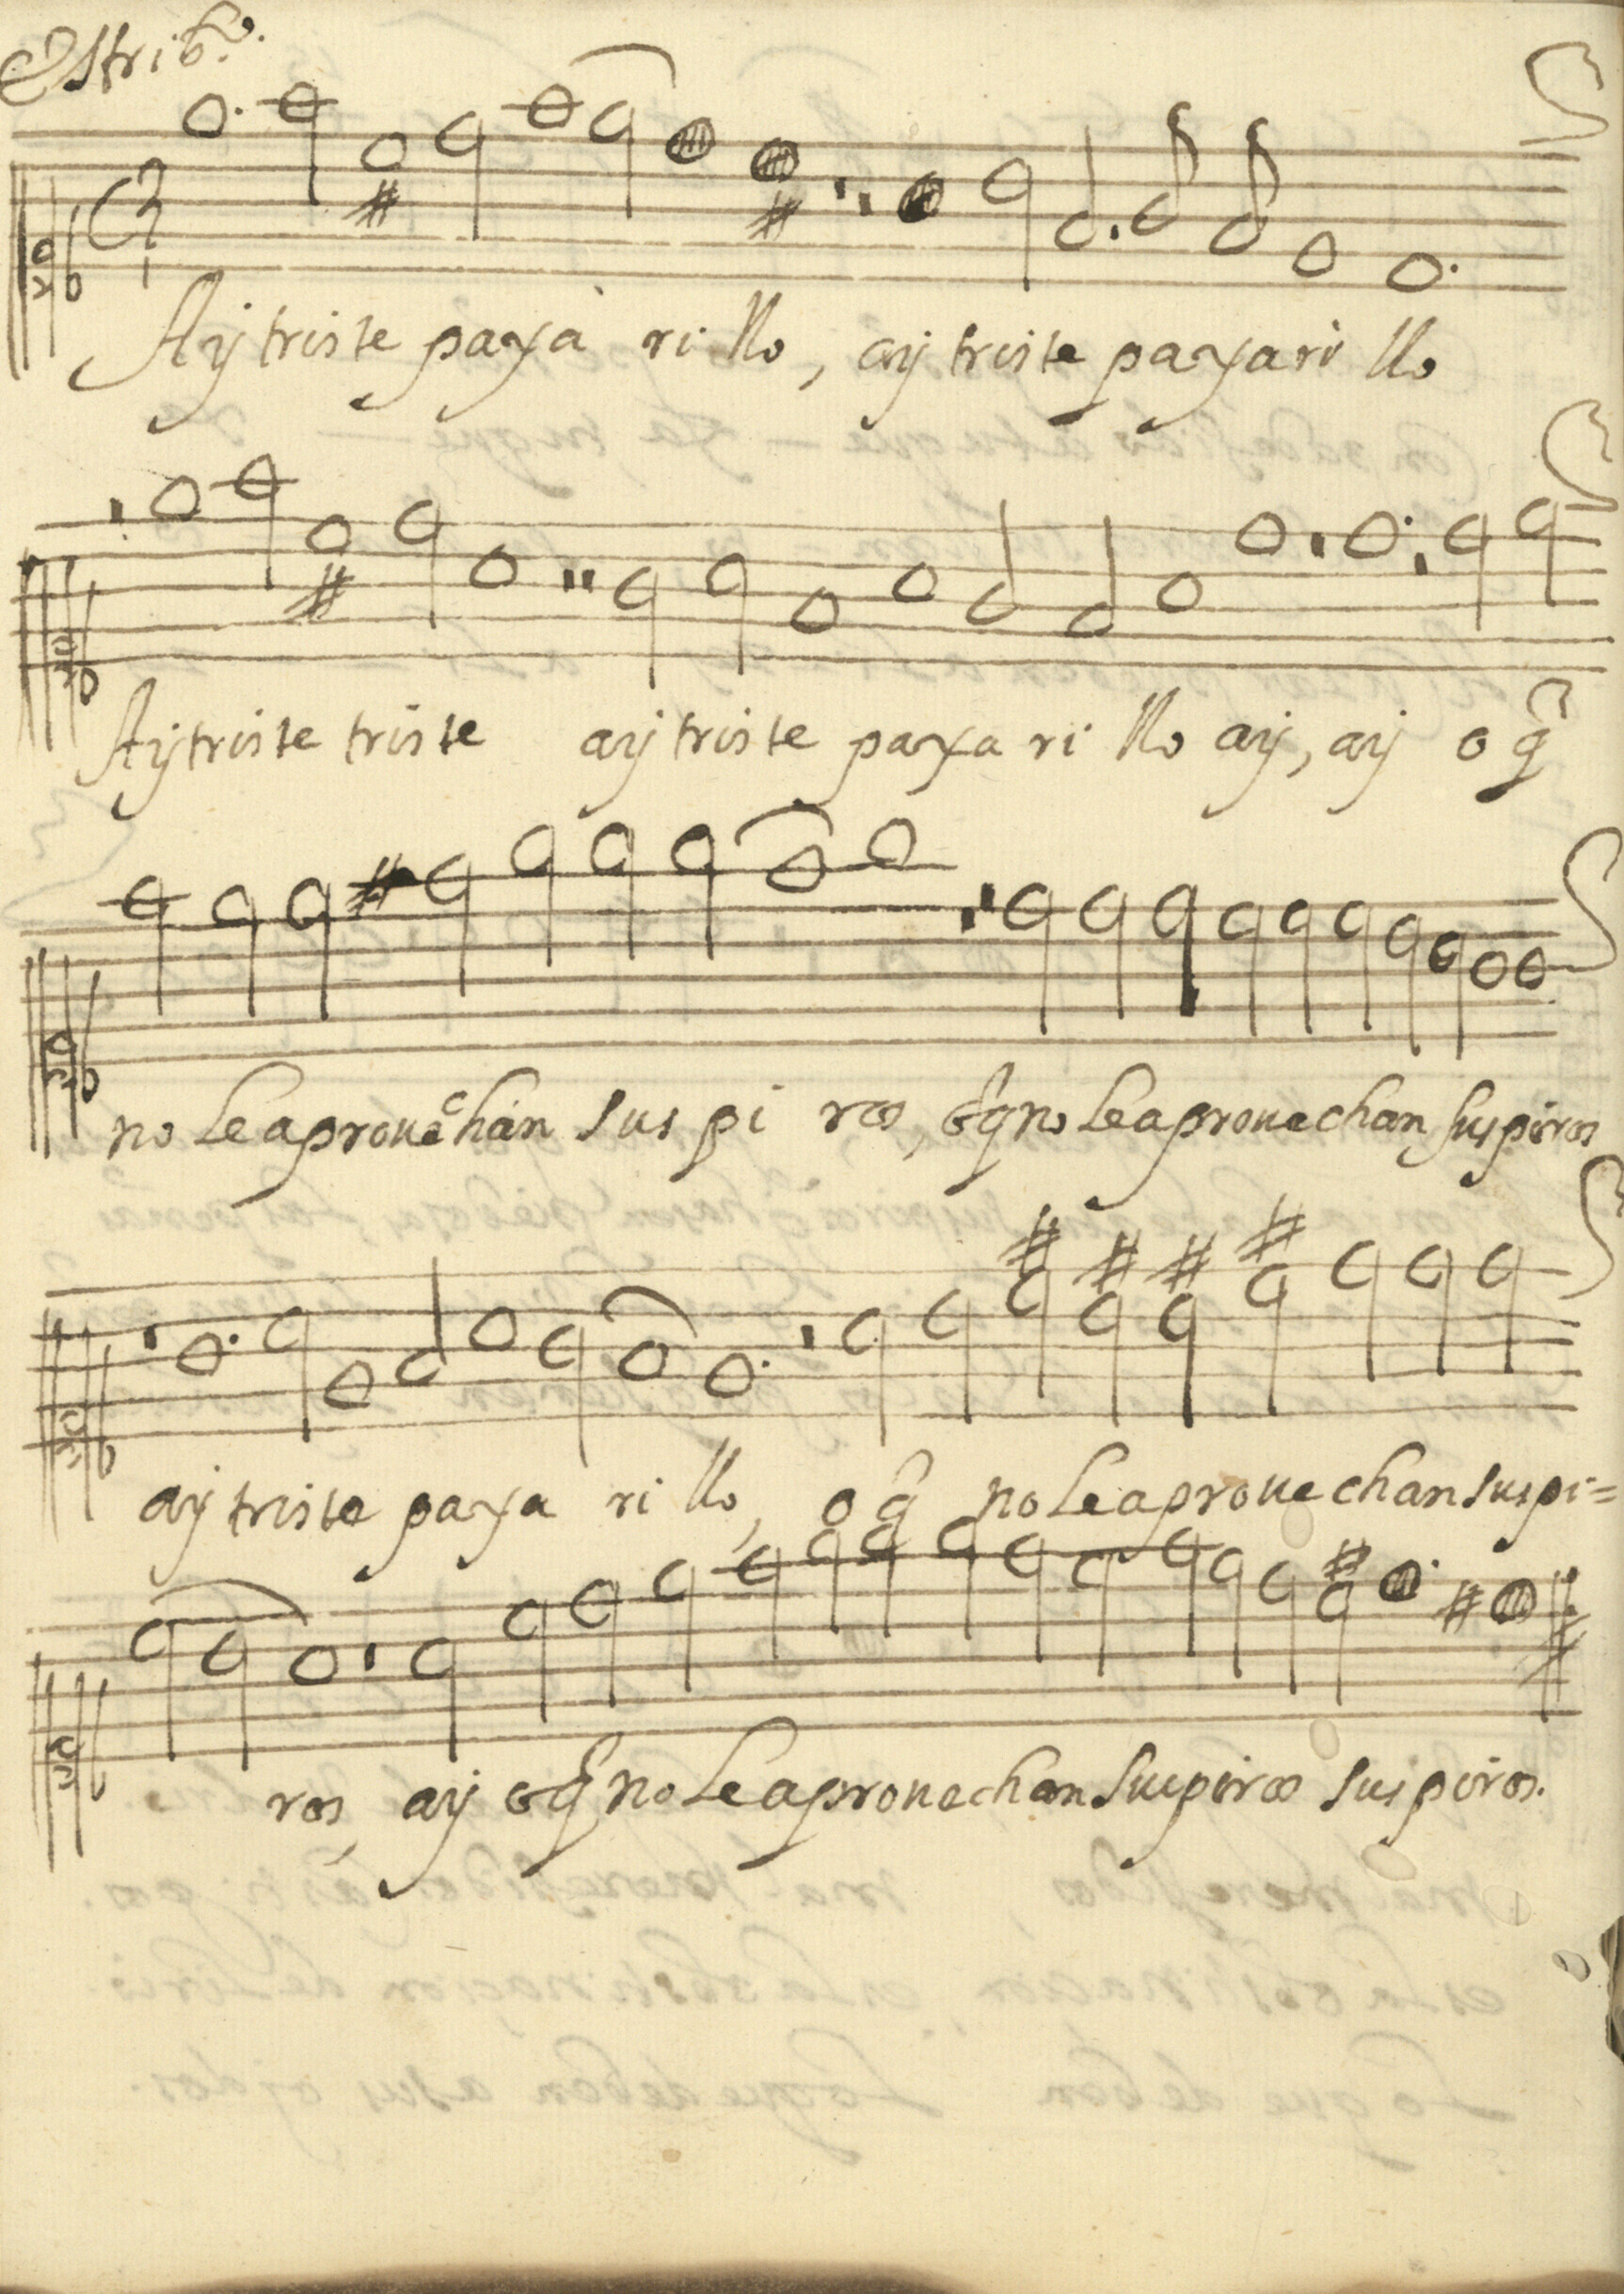 Estrib.º
Ay triste paxa rillo, ay triste paxarillo
Ay triste triste ay triste paxa rillo ay, ay o q̃
no le aprouechan suspi ros, o q̃ no le aprouechan suspiros
ay triste paxa rillo, o q̃ no le aprouechan suspi=
ros, ay o q̃ no le aprouechan suspiros suspiros.